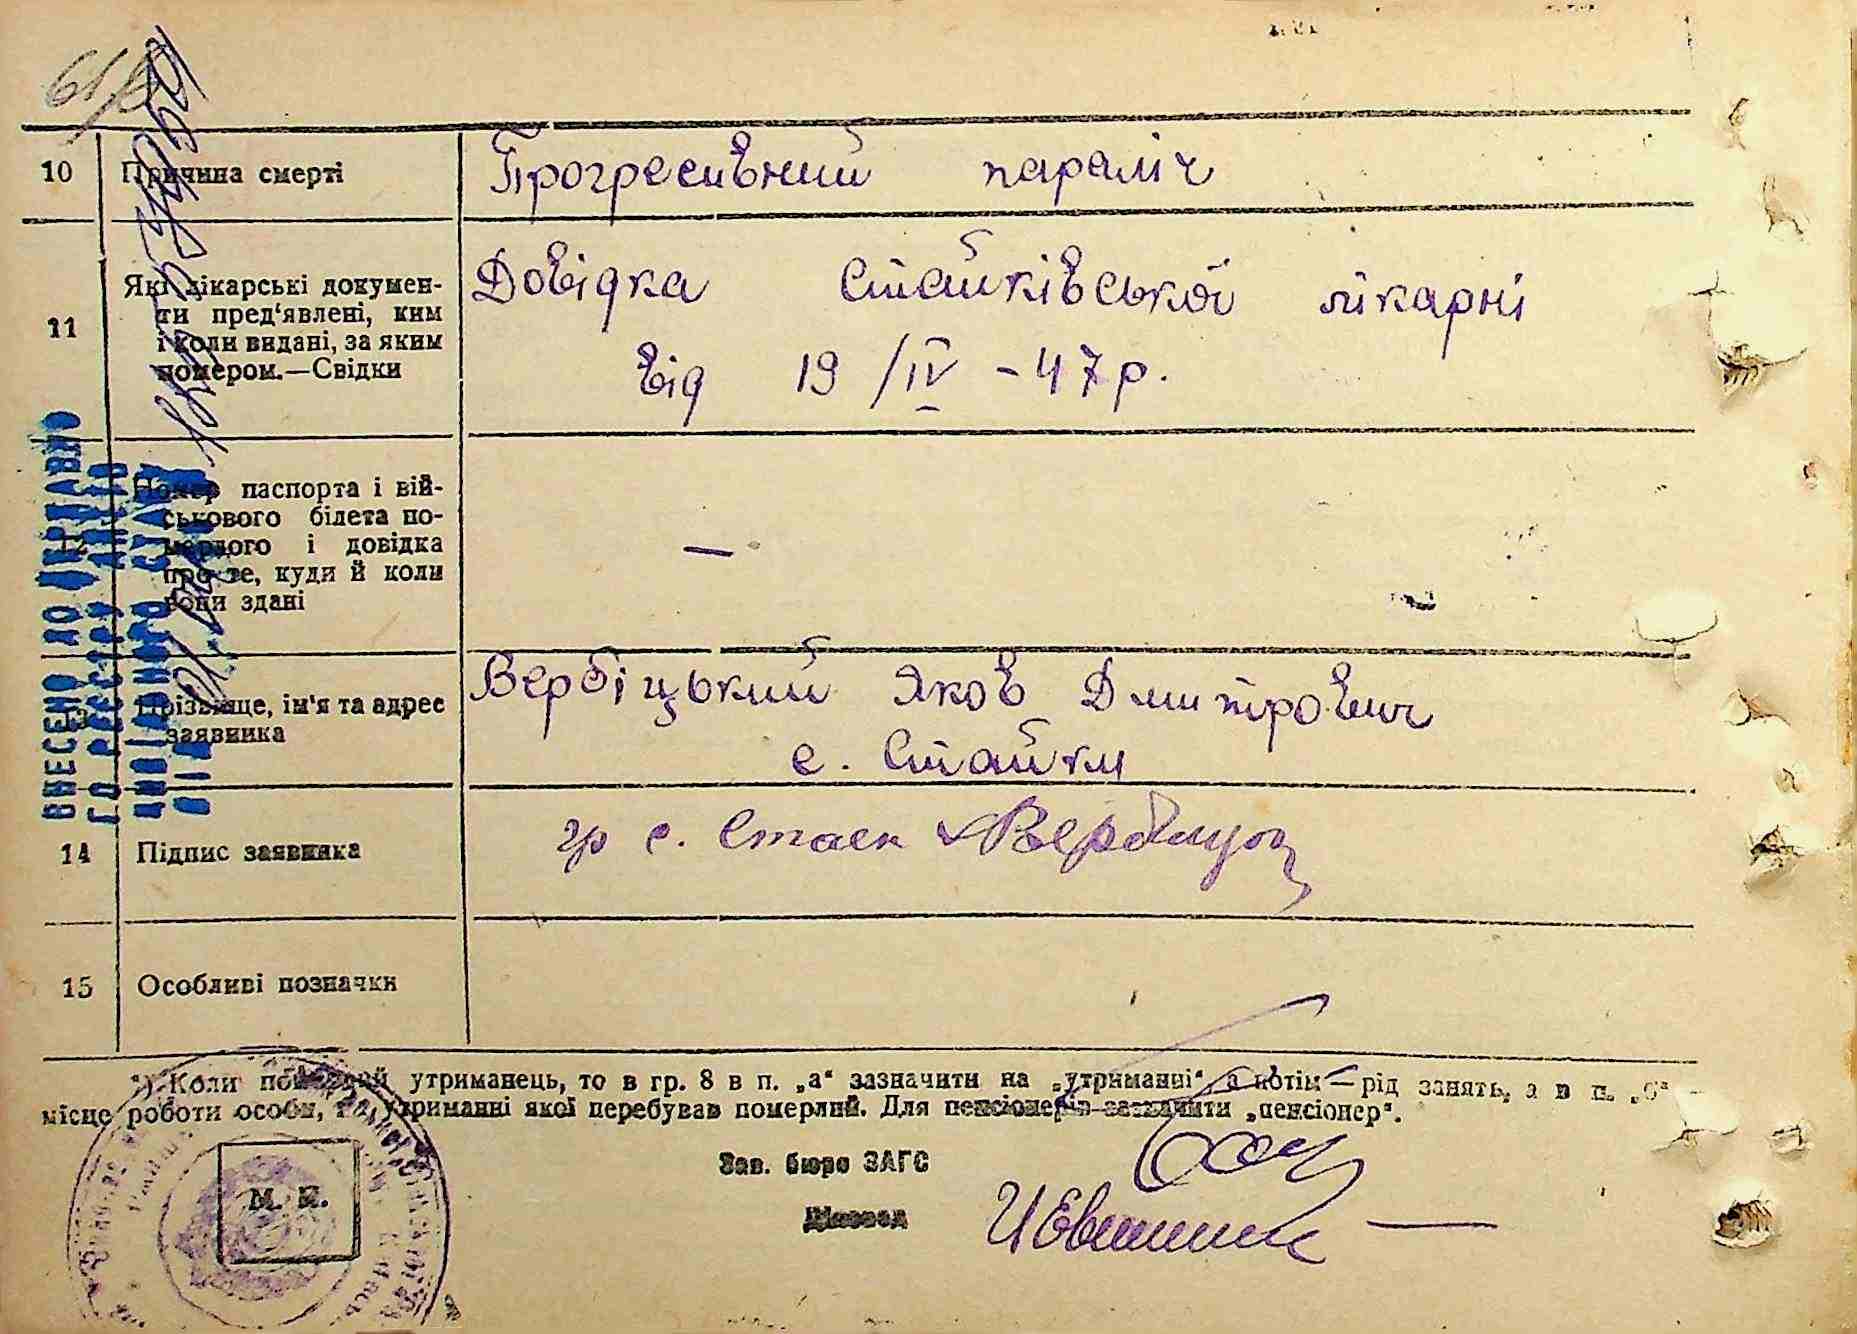 10 Причина смерті Прогресивний параліч
11 Які лікарські докумен-
ти пред'явлені, ким
і коли видані, за яким
номером.—Свідки
Довідка Стайківської лікарні
від 19/IV – 47 р.
12 Номер паспорта і вій-
ськового білета по-
мерлого і довідка
про те, куди й коли
вони здані
—
13 Прізвище, ім'я та адрес
заявника
Вербіцький Яков Дмитрович
с. Стайки
14 Підпис заявника гр с. Стаек
15 Особливі позначки
*) Коли померлий утриманець, то в гр. 8 в п. „а“ зазначити на „утриманні“ а потім — рід занять, а в п. „б“ —
місце роботи особи, на утриманні якої перебував померлий. Для пенсіонерів зазначити „пенсіонер“.
Зав. бюро ЗАГС
Діловод
М. П.
ВНЕСЕНО ДО ДЕРЖАВНО
ГО РЕЄСТРУ АКТІВ
ЦИВІЛЬНОГО СТАНУ